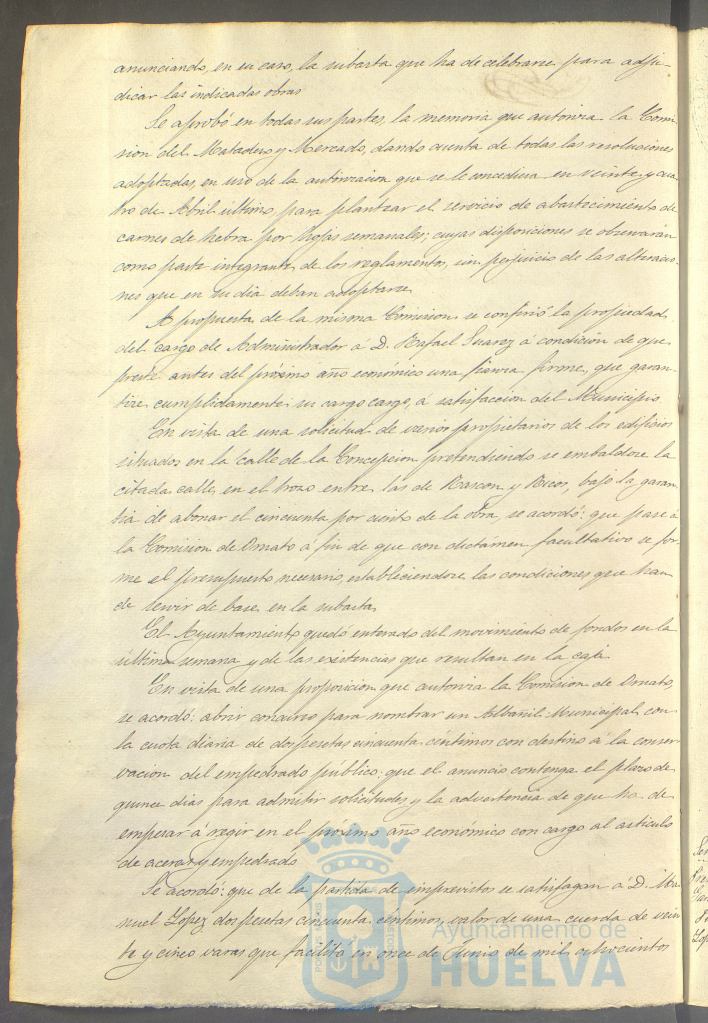 anunciando, en su caso, la subasta que ha de celebrarse para adju-
dicar las indicadas obras
Se aprobó en todas sus partes, la memoria que autoriza la Comi-
sion del Matadero y Mercado, dando cuenta de todas las resoluciones
adoptadas, en uso de la autorizacion que se le concediera en veinte y cua-
tro de Abril último, para plantear el servicio de abastecimiento de
carnes de hebra por hojas semanales; cuyas disposiciones se observarán
como parte integrante de los reglamentos, sin perjuicio de las alteracio-
nes que en su dia deban adoptarse
A propuesta de la misma Comision se confirió la propiedad
del cargo de Administrador á D. Rafael Suarez á condicion de que
preste antes del próximo año económico una fianza firme, que garan-
tize cumplidamente su cargo cargo, á satisfaccion del Municipio
En vista de una solicitud de varios propietarios de los edificios
situados en la Calle de la Concepcion pretendiendo se embaldose la
citada calle, en el trozo entre las de Rascon y Ricos, bajo la garan-
tia de abonar el cincuenta por ciento de la obra, se acordó: que pase á
la Comision de Ornato á fin de que con dictámen facultativo se for-
me el presupuesto necesario, estableciendose las condiciones que han
de servir de base en la subasta
El Ayuntamiento quedó enterado del movimiento de fondos en la
última semana y de las existencias que resultan en la caja
En vista de una proposicion que autoriza la Comision de Ornato,
se acordó: abrir concurso para nombrar un Albañil Municipal con
la cuota diaria de dos pesetas cincuenta céntimos con destino á la conser-
vacion del empedrado público: que el anuncio contenga el plazo de
quince dias para admitir solicitudes y la advertencia de que ha de
empezar á regir en el próximo año económico con cargo al articulo
de aceras y empedrado
Se acordó: que de la partida de imprevistos se satisfagan á D. Ma-
nuel Lopez dos pesetas cincuenta céntimos, valor de una cuerda de vein-
te y cinco varas que facilitó en once de Junio de mil ochocientos
Ayuntamiento de
HUELVA